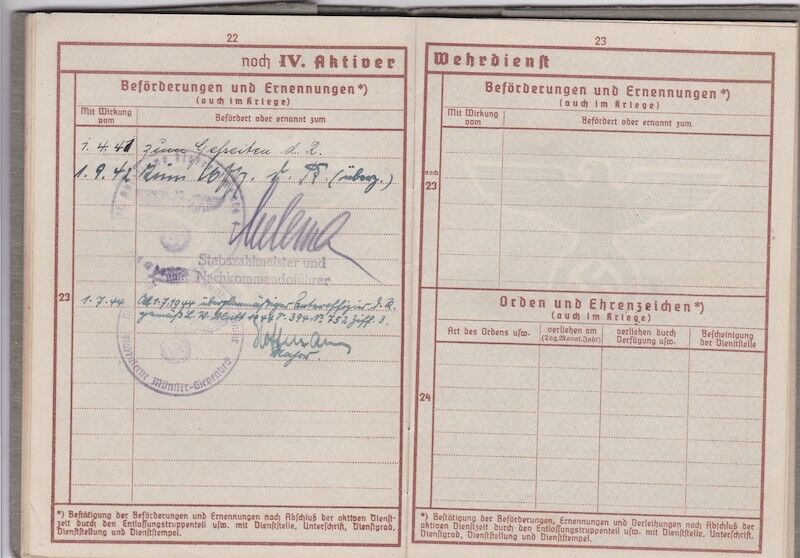 22
noch IV. Aktiver
Beförderungen und Ernennungen*)
(auch im Kriege)
Mit Wirkung vom
Befördert oder ernannt zum
1.4.41 zum Gefreiten d. R.
1.9.42 zum Uffz. d. R. (überz.)
Stabszahlmeister und
Nachkommandoführer
23
1.7.44 Ab 1.7.1944 überplanmäßiger Unteroffizier d. R.
gemäß L.V.Blatt 1944 394 Nr 752 Ziff. 3.
Major.
Flakkaserne Münster-Gievenbeck
*) Bestätigung der Beförderungen und Ernennungen nach Abschluß der aktiven Dienst-
zeit durch den Entlassungstruppenteil usw. mit Dienststelle, Unterschrift, Dienstgrad,
Dienststellung und Dienststempel.
23
Wehrdienst
Beförderungen und Ernennungen*)
(auch im Kriege)
Mit Wirkung vom
Befördert oder ernannt zum
noch
23
Orden und Ehrenzeichen*)
(auch im Kriege)
Art des Ordens usw.
verliehen am (Tag, Monat, Jahr)
verliehen durch Verfügung usw.
Bescheinigung der Dienststelle
24
*) Bestätigung der Beförderungen, Ernennungen und Verleihungen nach Abschluß der
aktiven Dienstzeit durch den Entlassungstruppenteil usw. mit Dienststelle, Unterschrift,
Dienstgrad, Dienststellung und Dienststempel.